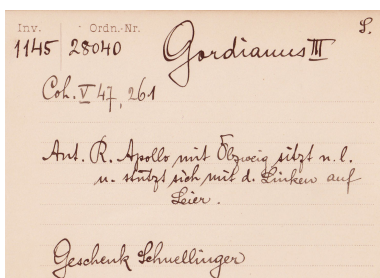 Inv. Ordn.-Nr. S.
1145 28040 Gordianus III
Coh. V 47, 261
Ant. R. Apollo mit Ölzweig sitzt n. l.
u. stützt sich mit d. Linken auf
Leier.
Geschenk Schnellinger